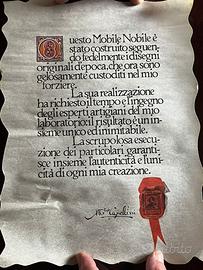 Questo Mobile Nobile è
stato costruito seguen-
do fedelmente i disegni
originali d'epoca, che ora sono
gelosamente custoditi nel mio
forziere.
La sua realizzazione
ha richiesto il tempo e l'ingegno
degli esperti artigiani del mio
laboratorio: il risultato è un in-
sieme unico ed inimitabile.
La scrupolosa esecu-
zione dei particolari garanti-
sce insieme l'autenticità e l'uni-
cità di ogni mia creazione.
subito